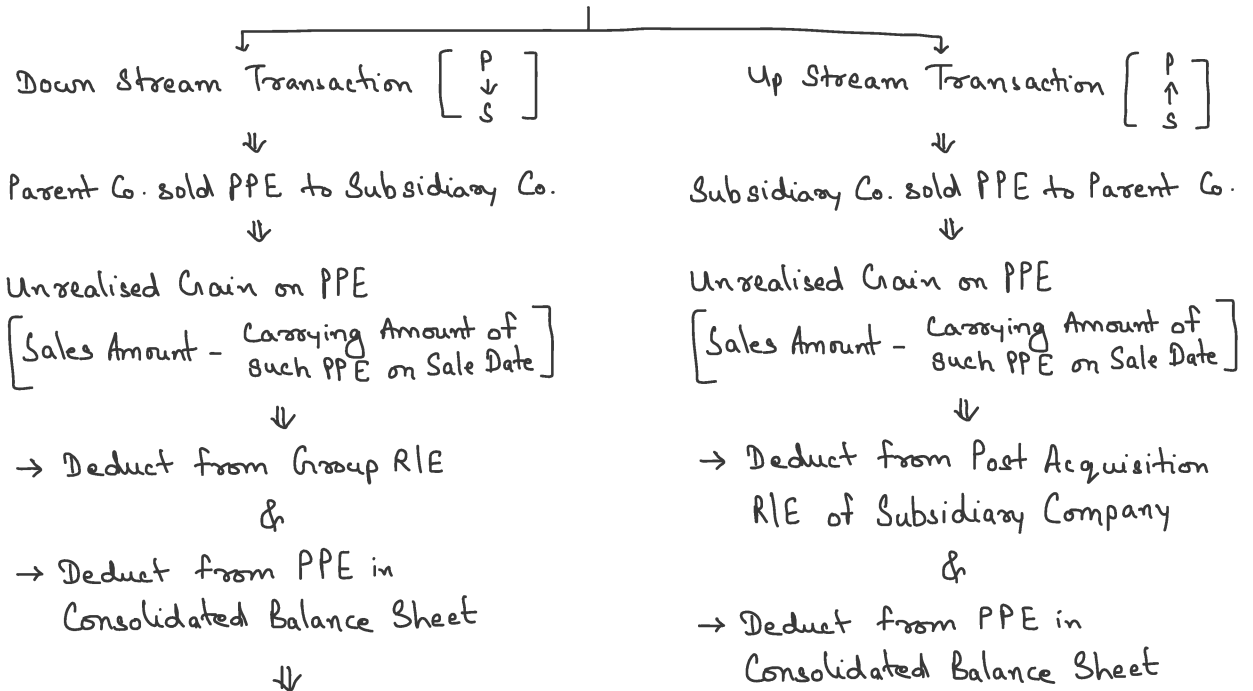 Down Stream Transaction [P ↓ S]
⇓
Parent Co. sold PPE to Subsidiary Co.
⇓
Unrealised Gain on PPE
[Sales Amount - Carrying Amount of
such PPE on Sale Date]
⇓
→ Deduct from Group R/E
&
→ Deduct from PPE in
Consolidated Balance Sheet
⇓
Up Stream Transaction [P ↑ S]
⇓
Subsidiary Co. sold PPE to Parent Co.
⇓
Unrealised Gain on PPE
[Sales Amount - Carrying Amount of
such PPE on Sale Date]
⇓
→ Deduct from Post Acquisition
R/E of Subsidiary Company
&
→ Deduct from PPE in
Consolidated Balance Sheet